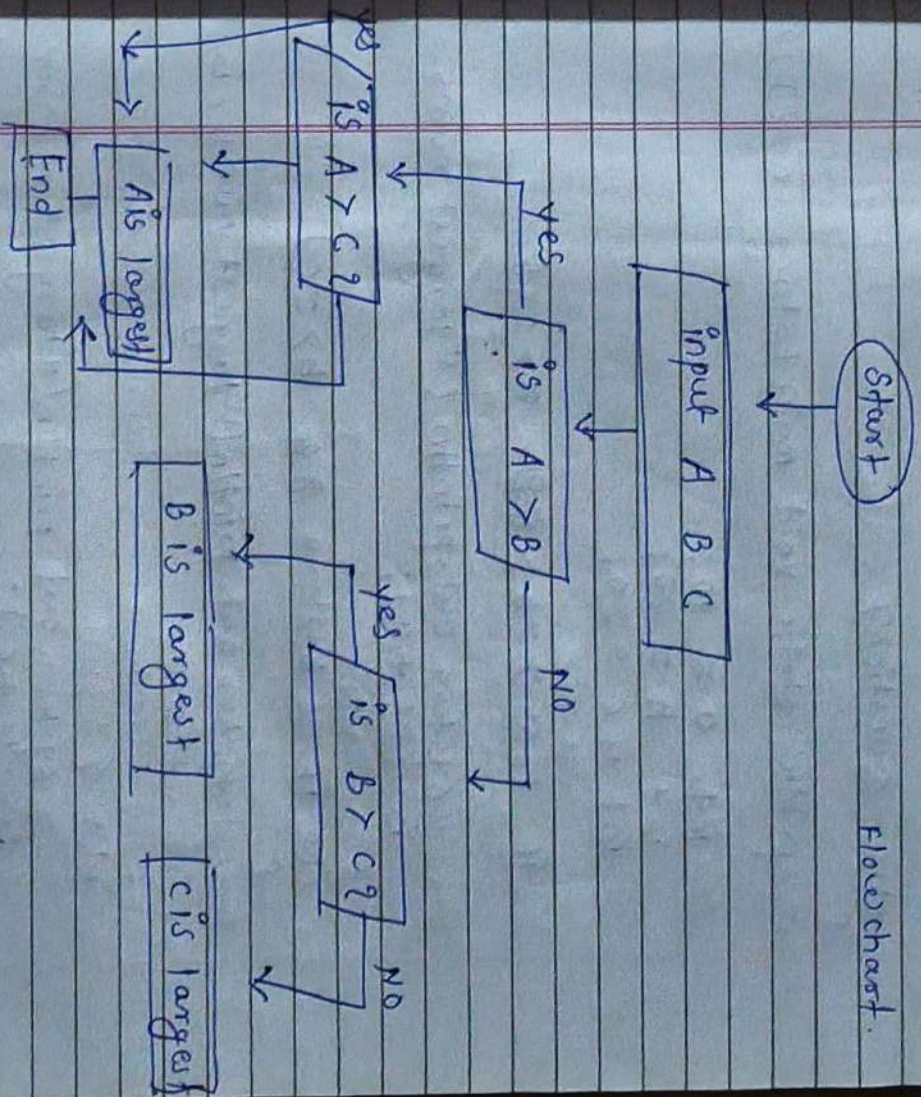 Flowchart.
Start
input A B C
is A > B
yes
NO
is A > C ?
yes
is B > C ?
yes
NO
A is largest
B is largest
C is largest
End